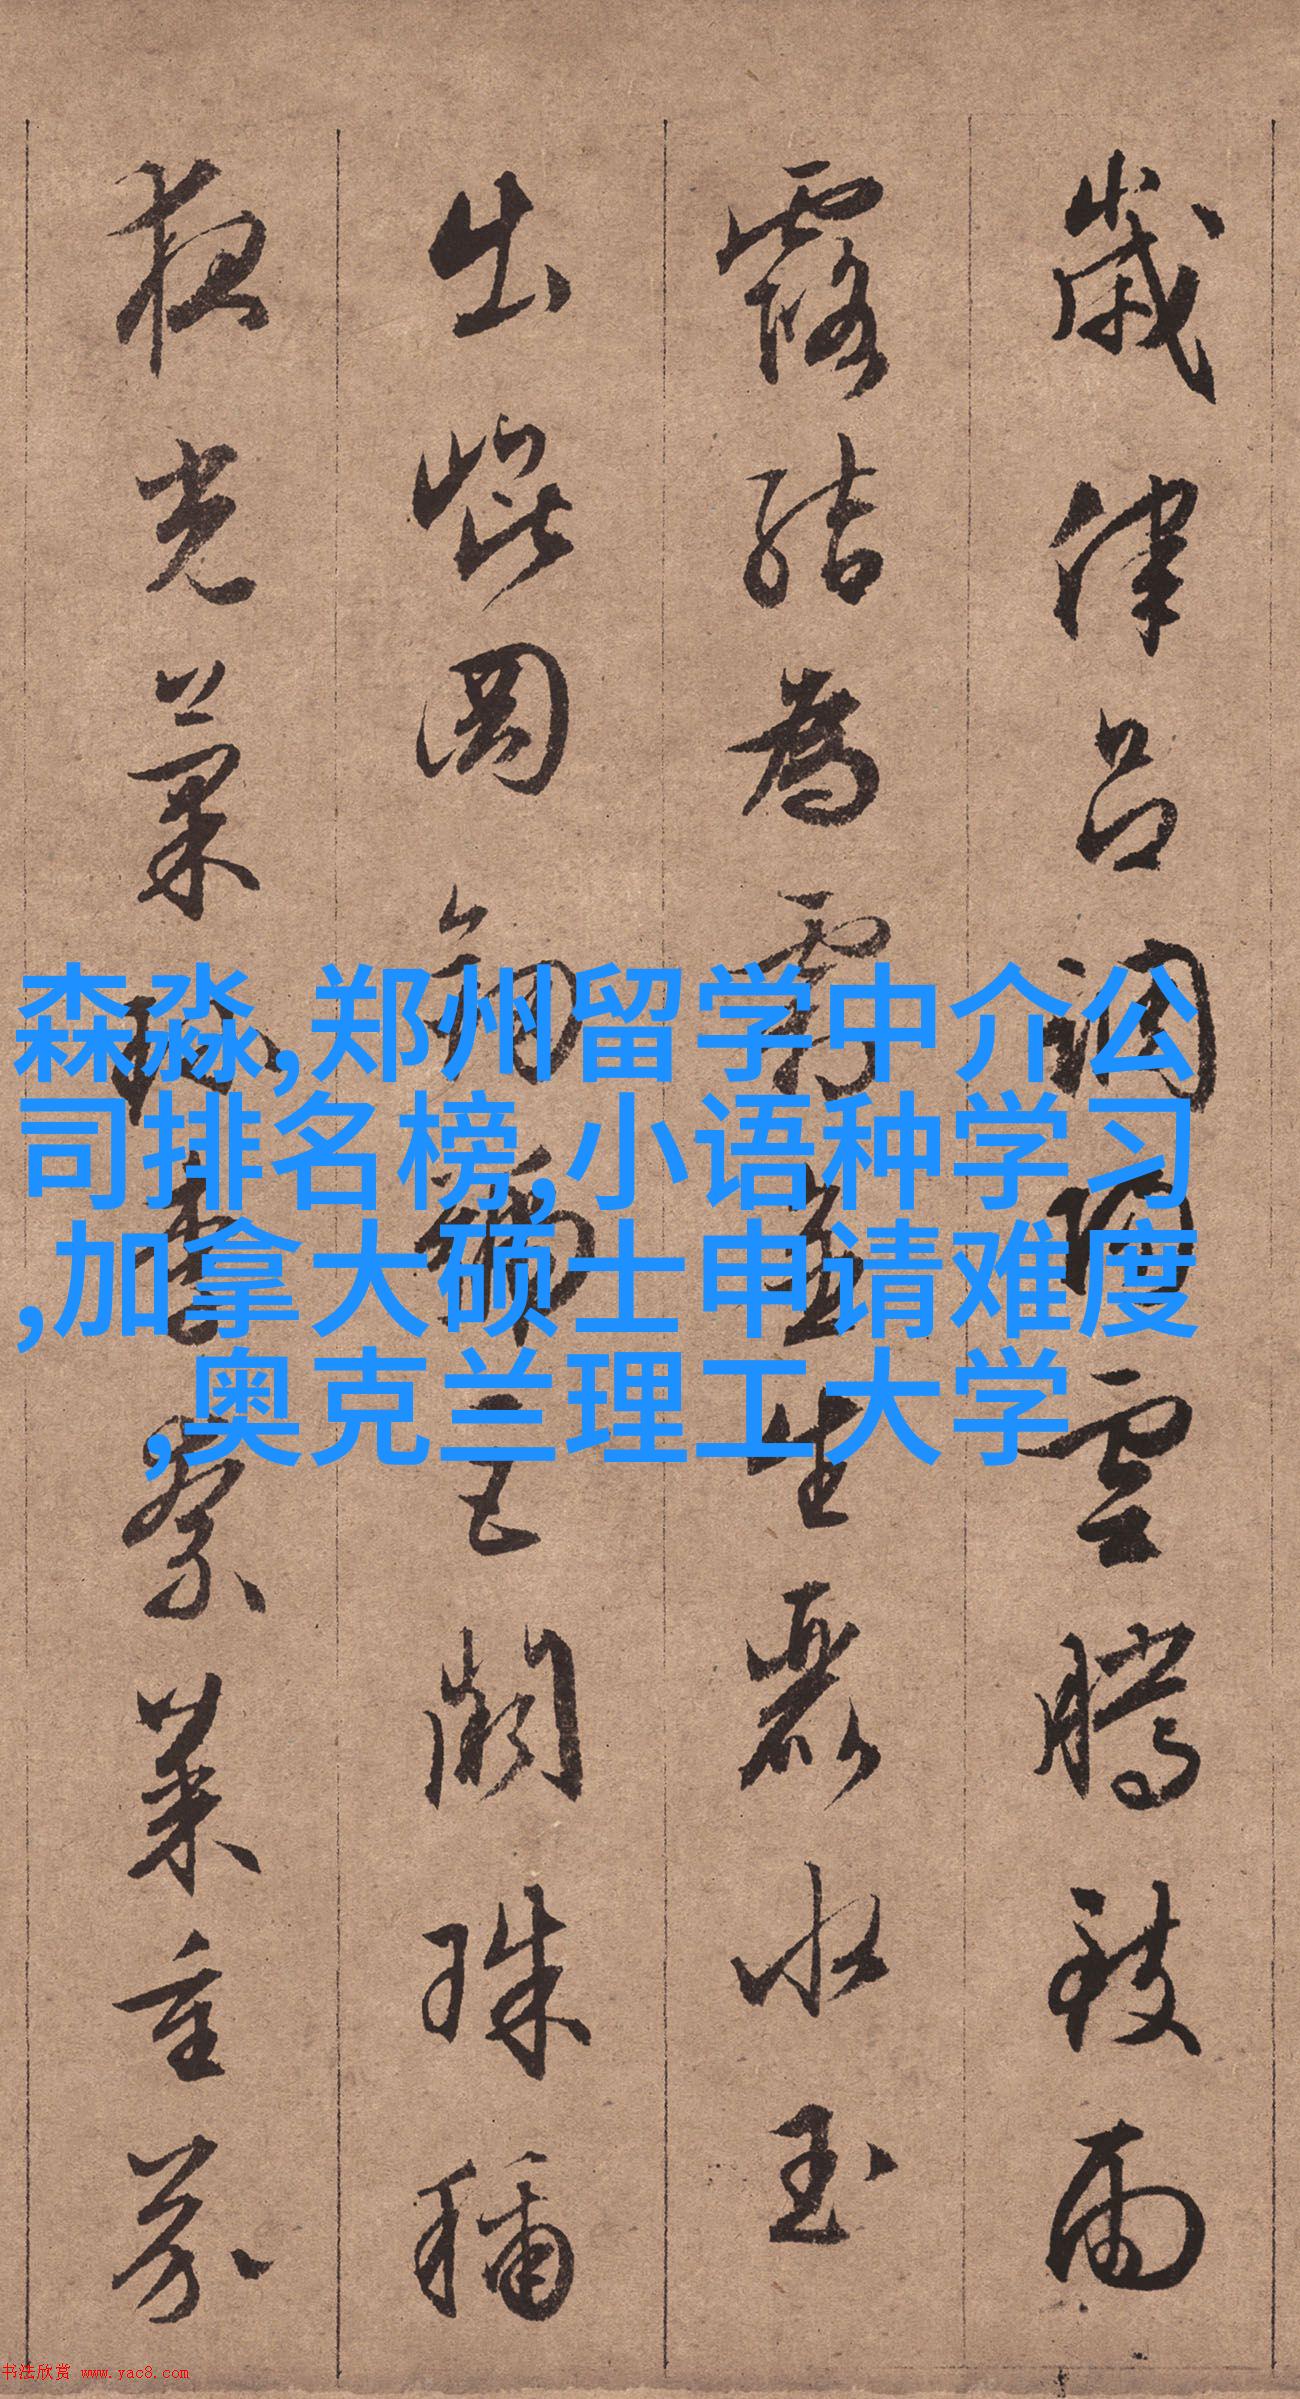 歲律呂調陽雲騰致雨
露結為霜金生麗水玉
出崐岡劒號巨闕珠稱
夜光菓珍李柰菜重芥
森淼,郑州留学中介公
司排名榜,小语种学习
,加拿大硕士申请难度
,奥克兰理工大学
书法欣赏 www.yac8.com